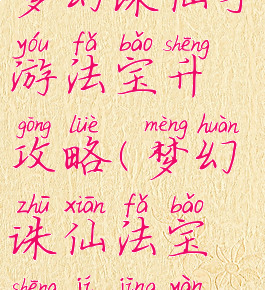 梦幻诛仙手
yóu fǎ bǎo shēng
游法宝升
gōng lüè mèng huàn
攻略(梦幻
zhū xiān fǎ bǎo
诛仙法宝
shēng jí jīng yàn